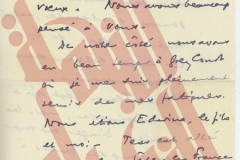 vœux. Nous avons beaucoup
pensé à vous.
De notre côté, nous avons
eu beau temps à Grey Court
où je me suis pleinement
remis de mes fatigues.
Nous étions Edwina, le fils
et moi. Tess est allé
France